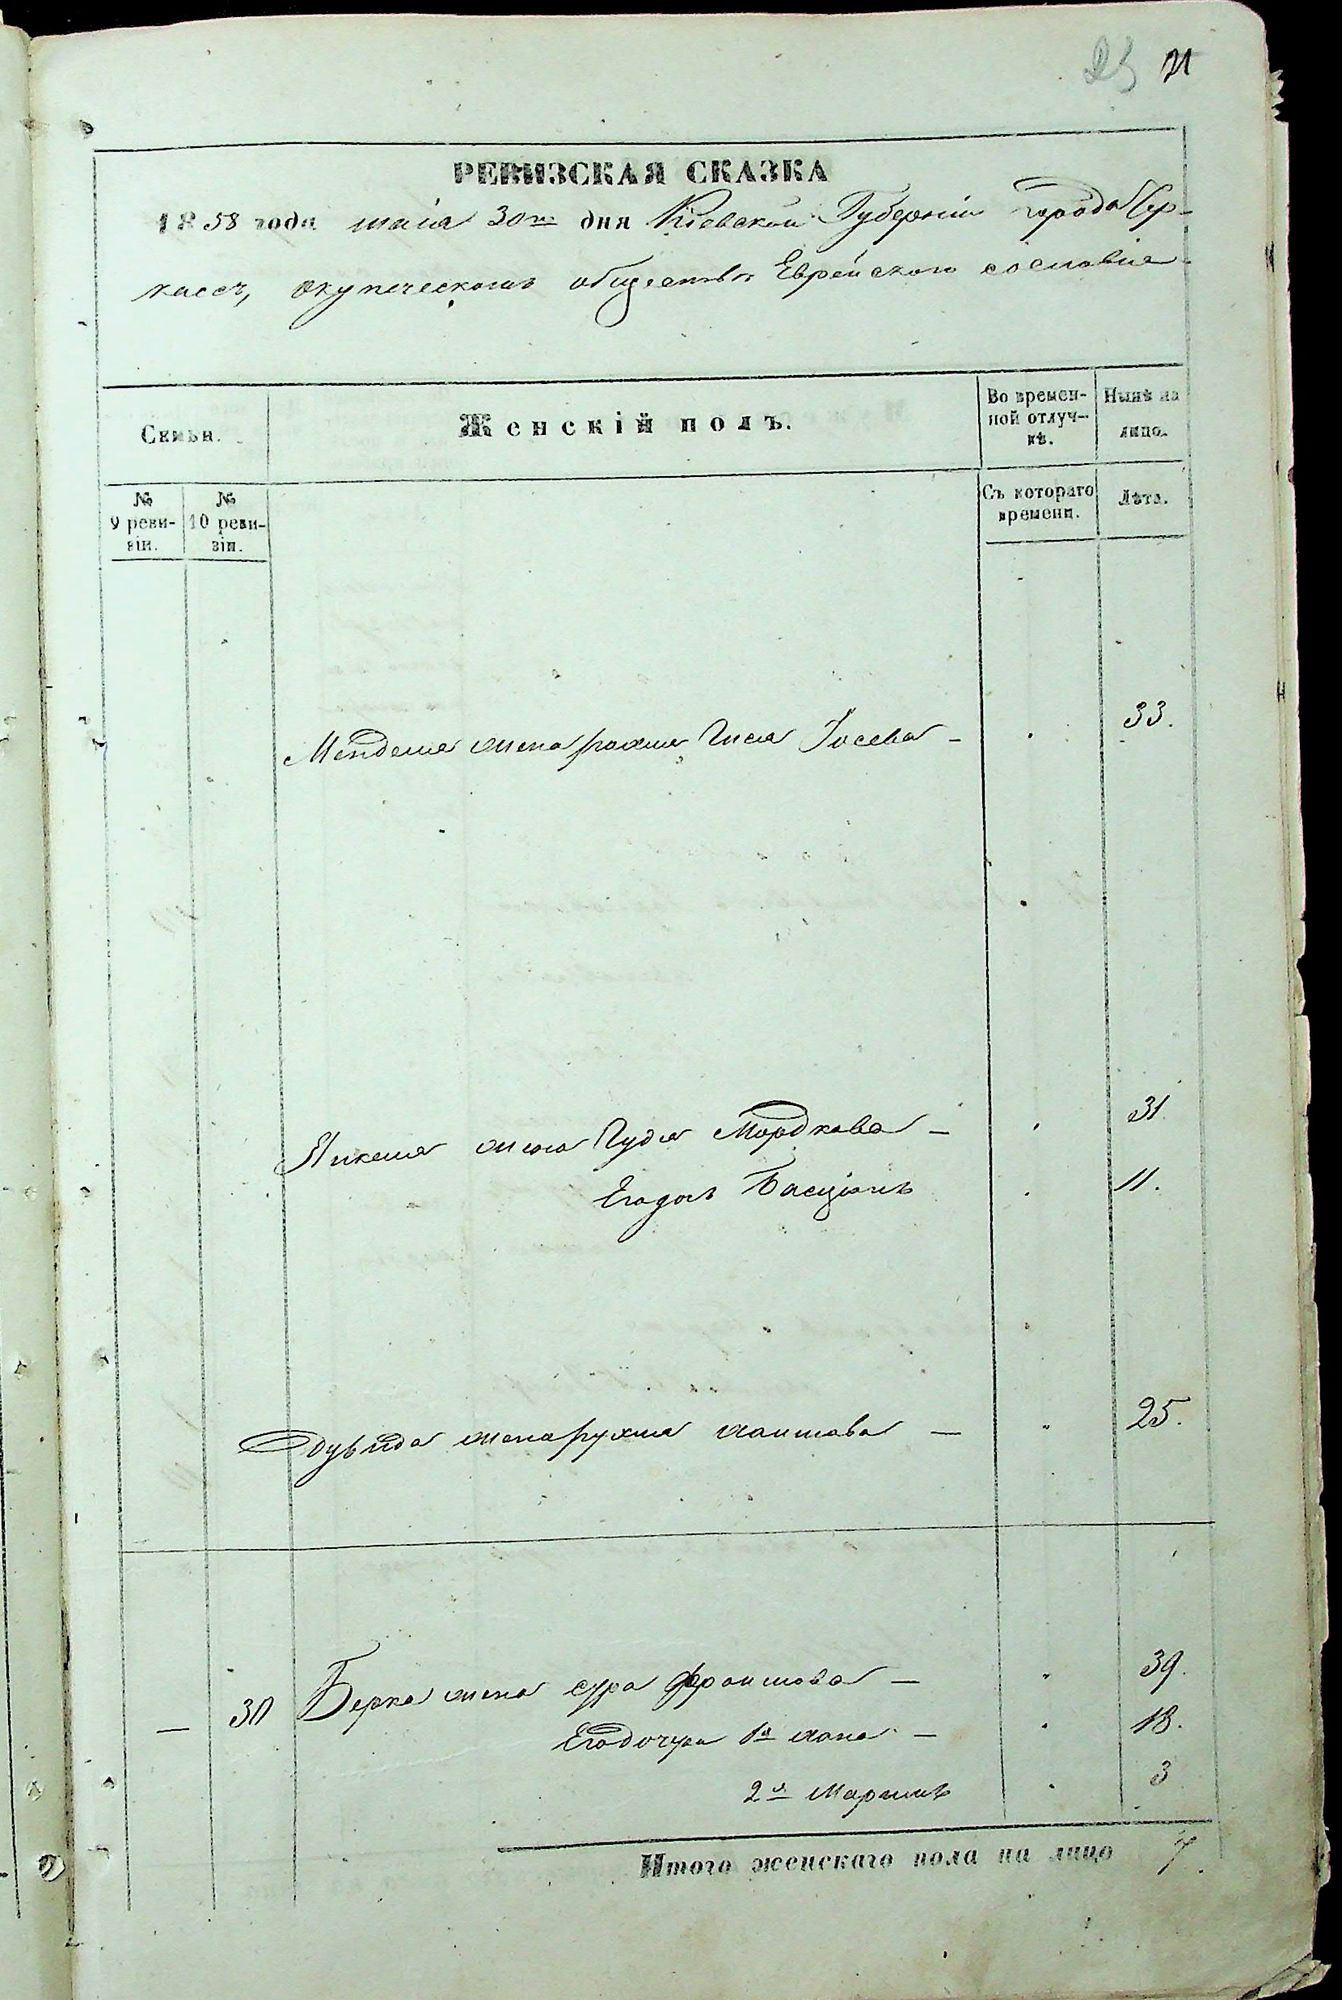 25 21
РЕВИЗСКАЯ СКАЗКА
1858 года маія 30го дня Кіевской Губерніи города Чер-
кассъ, о купеческомъ обществѣ Еврейскаго сословія
Семьи.
Женскій полъ.
Во времен-
ной отлуч-
кѣ.
Нынѣ на
лицо.
№
9 реви-
зіи.
№
10 реви-
зіи.
Съ котораго
времени.
Лѣта.
Менделя жена Гися Іосева — 33.
жена Гудя Мордкова — 31.
Его дочь 11.
жена рухля — 25.
— 30 Берка жена сура — 39.
Его дочери 1я хана — 18.
2я 3
Итого женскаго пола на лицо 7.